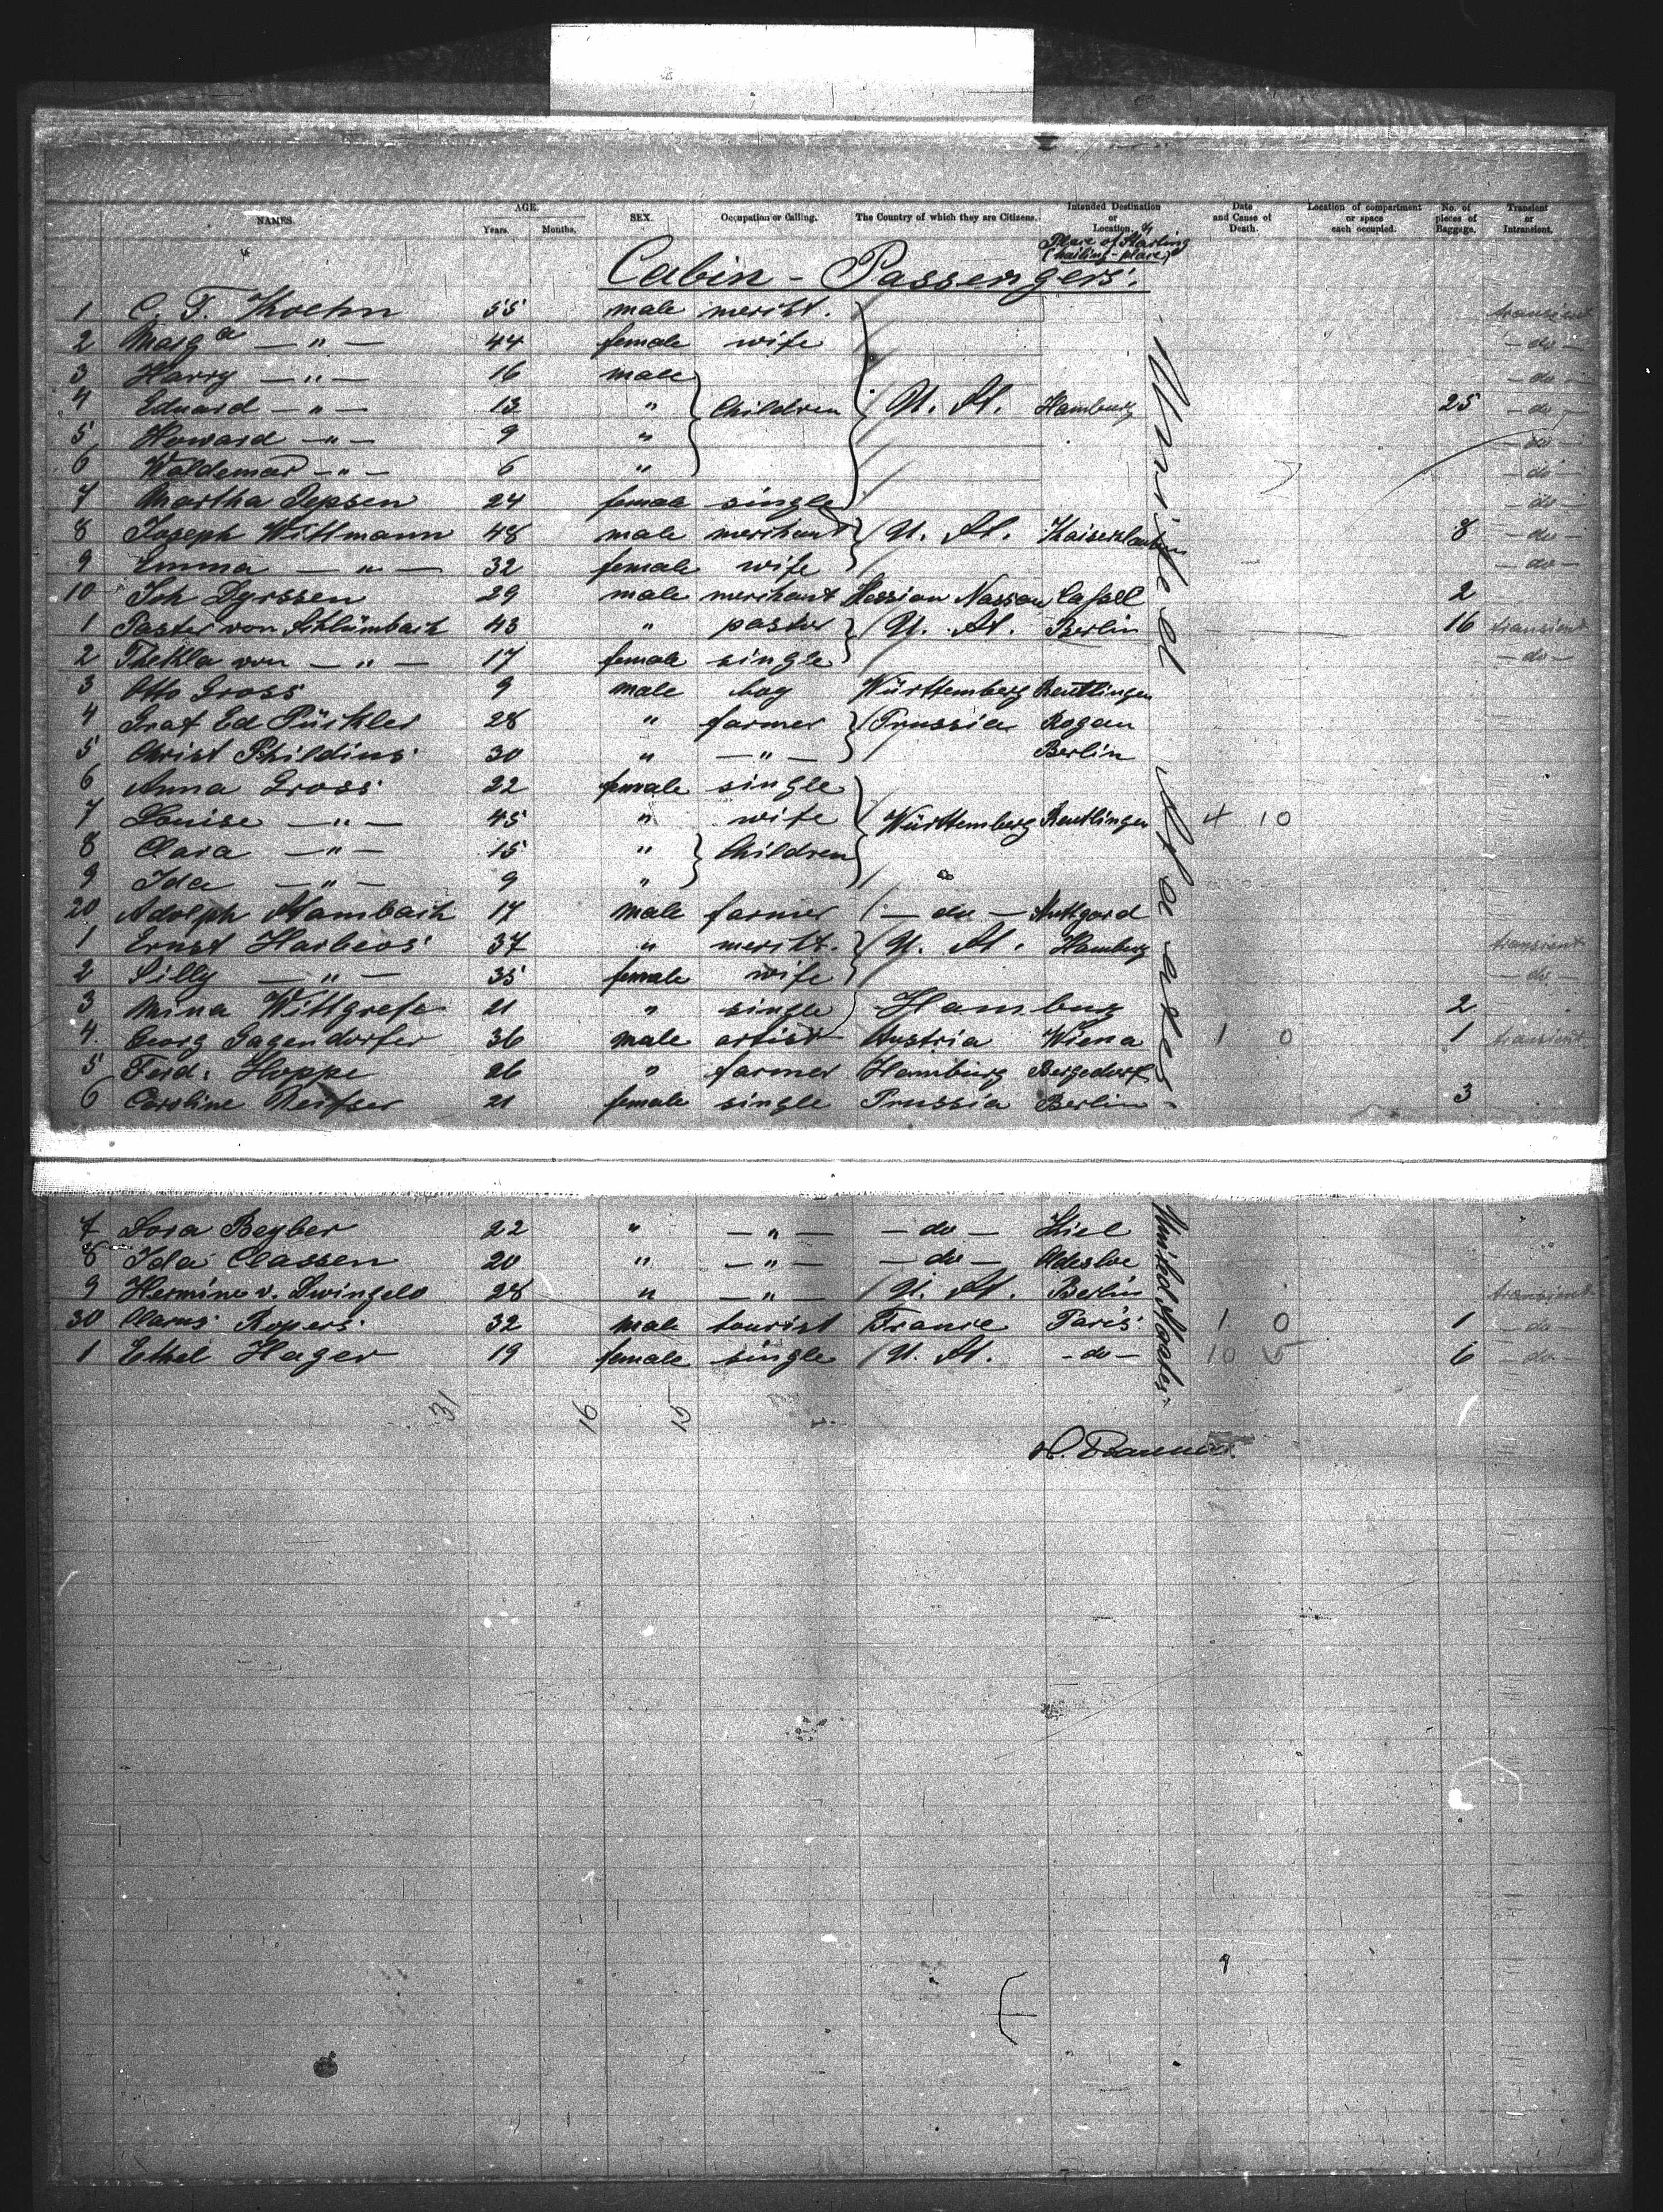 NAMES. AGE. Years. Months. SEX. Occupation or Calling. The Country of which they are Citizens. Intended Destination or Location. Date and Cause of Death. Location of compartment or space each occupied. No. of pieces of Baggage. Transient or Intransient.
Place of Starting
Cabin - Passengers.
1 C. F. Koehn 55 male mercht. transient
2 Marg a — " — 44 female wife — do —
3 Harry — " — 16 male — do —
4 Eduard — " — 13 " Children U. St. Hamburg 25 — do —
5 Howard — " — 9 " — do —
6 Waldemar — " — 6 " — do —
7 Martha Jepsen 24 female single — do —
8 Joseph Wittmann 48 male merchant U. St. Kaiserslautern 8 — do —
9 Emma — " — 32 female wife — do —
10 Joh Dyrssen 29 male merchant Hessian Nassau Cassel 2
1 Pastor von Schlümbach 43 " pastor U. St. Berlin 16 transient
2 Thekla von — " — 17 female single — do —
3 Otto Gross 9 male boy Württemberg Reutlingen
4 Graf Ed Pückler 28 " farmer Prussia Rogau
5 Christ Phildius 30 " — " — Berlin
6 Anna Gross 22 female single
7 Louise — " — 45 " wife Württemberg Reutlingen 4 10
8 Clara — " — 15 " Children
9 Ida — " — 9 "
20 Adolph Stambach 17 male farmer — do — Stuttgard
1 Ernst Harbeos 37 " mercht. U. St. Hamburg transient
2 Lilly — " — 35 female wife — do —
3 Mina Wittgrefe 21 " single Hamburg 2
4. Georg Gagendorfer 36 male artist Austria Wiena 1 0 1 transient
5 Ferd. Hoppe 26 " farmer Hamburg Bergedorf
6 Caroline Neisser 21 female single Prussia Berlin 3
United States
7 Dora Begber 22 " — " — — do — Kiel
8 Ida Classen 20 " — " — — do — Oldesloe
9 Hermine v. Dwingelo 28 " — " — U. St. Berlin transient
30 Clarus Ropers 32 male tourist France Paris 1 0 1 — do —
1 Ethel Hager 19 female single U. St. — do — 10 5 6 — do —
United States
31 16 15